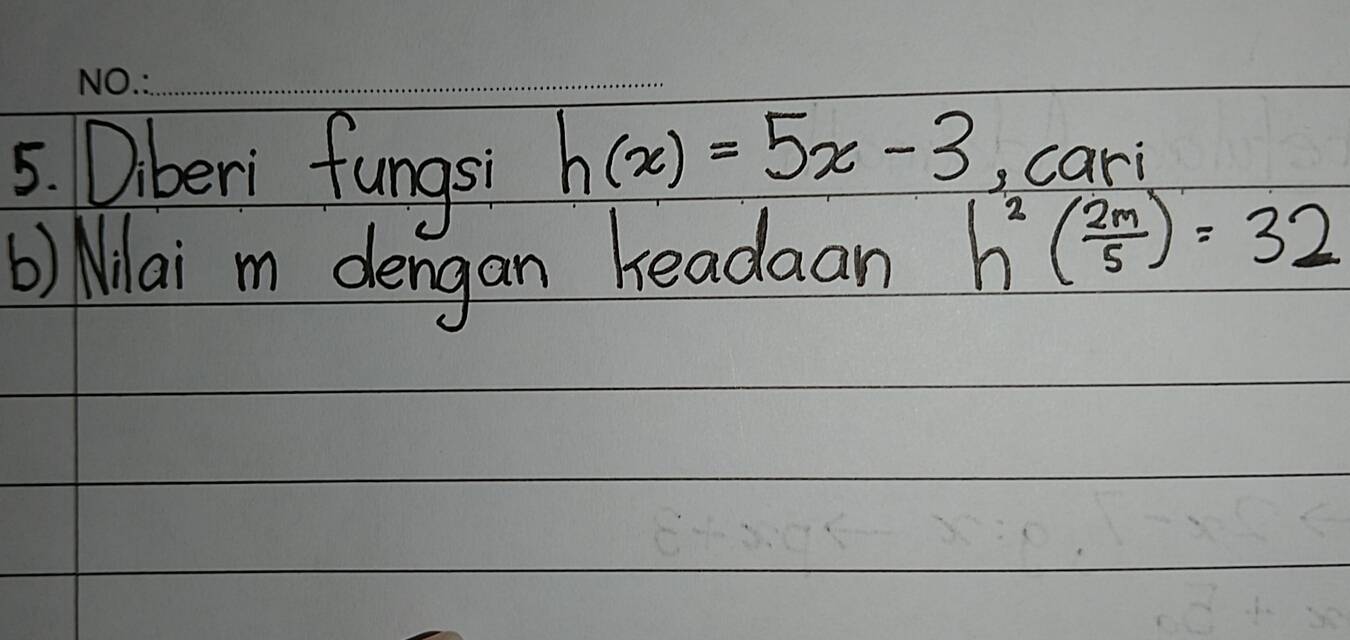 NO.:
5. Diberi fungsi h(x) = 5x - 3, cari
b) Nilai m dengan keadaan h² (2m/5) = 32